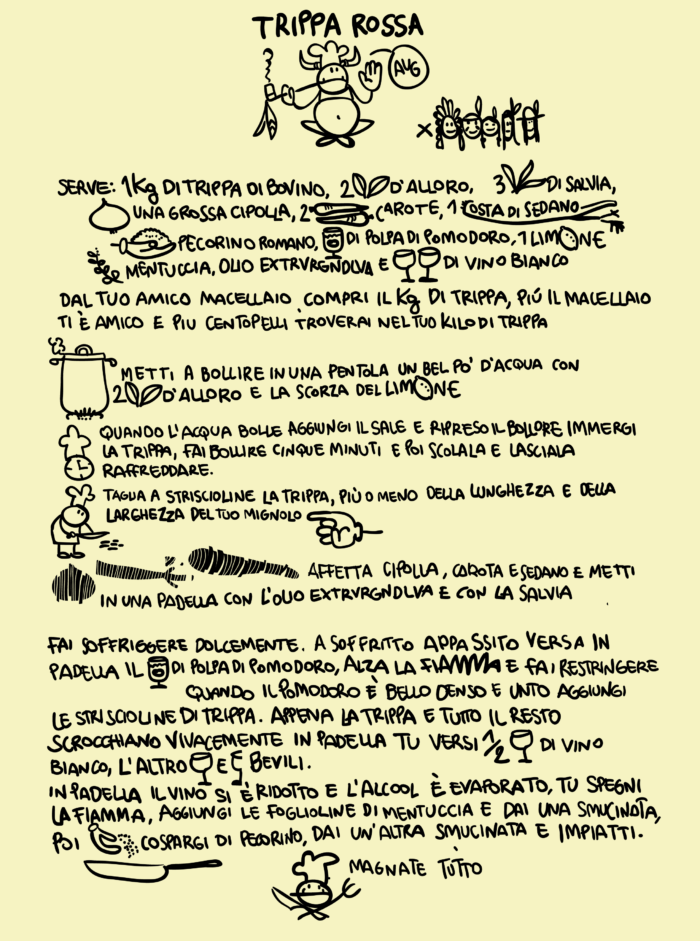 TRIPPA ROSSA
AUG
×
SERVE: 1Kg DI TRIPPA DI BOVINO, 2 D'ALLORO, 3 DI SALVIA,
UNA GROSSA CIPOLLA, 2 CAROTE, 1 COSTA DI SEDANO
PECORINO ROMANO, DI POLPA DI POMODORO, 1 LIMONE
MENTUCCIA, OLIO EXTRVRGNDLVA E DI VINO BIANCO
DAL TUO AMICO MACELLAIO COMPRI IL Kg DI TRIPPA, PIÚ IL MACELLAIO
TI È AMICO E PIU CENTOPELLI TROVERAI NEL TUO KILO DI TRIPPA
METTI A BOLLIRE IN UNA PENTOLA UN BEL PO' D'ACQUA CON
2 D'ALLORO E LA SCORZA DEL LIMONE
QUANDO L'ACQUA BOLLE AGGIUNGI IL SALE E RIPRESO IL BOLLORE IMMERGI
LA TRIPPA, FAI BOLLIRE CINQUE MINUTI E POI SCOLALA E LASCIALA
RAFFREDDARE.
TAGLIA A STRISCIOLINE LA TRIPPA, PIÙ O MENO DELLA LUNGHEZZA E DELLA
LARGHEZZA DEL TUO MIGNOLO
AFFETTA CIPOLLA, CAROTA E SEDANO E METTI
IN UNA PADELLA CON L'OLIO EXTRVRGNDLVA E CON LA SALVIA
FAI SOFFRIGGERE DOLCEMENTE. A SOFFRITTO APPASSITO VERSA IN
PADELLA IL DI POLPA DI POMODORO, ALZA LA FIAMMA E FAI RESTRINGERE
QUANDO IL POMODORO È BELLO DENSO E UNTO AGGIUNGI
LE STRISCIOLINE DI TRIPPA. APPENA LA TRIPPA E TUTTO IL RESTO
SCROCCHIANO VIVACEMENTE IN PADELLA TU VERSI 1/2 DI VINO
BIANCO, L'ALTRO E BEVILI.
IN PADELLA IL VINO SI È RIDOTTO E L'ALCOOL È EVAPORATO, TU SPEGNI
LA FIAMMA, AGGIUNGI LE FOGLIOLINE DI MENTUCCIA E DAI UNA SMUCINATA,
POI COSPARGI DI PECORINO, DAI UN'ALTRA SMUCINATA E IMPIATTI.
MAGNATE TUTTO